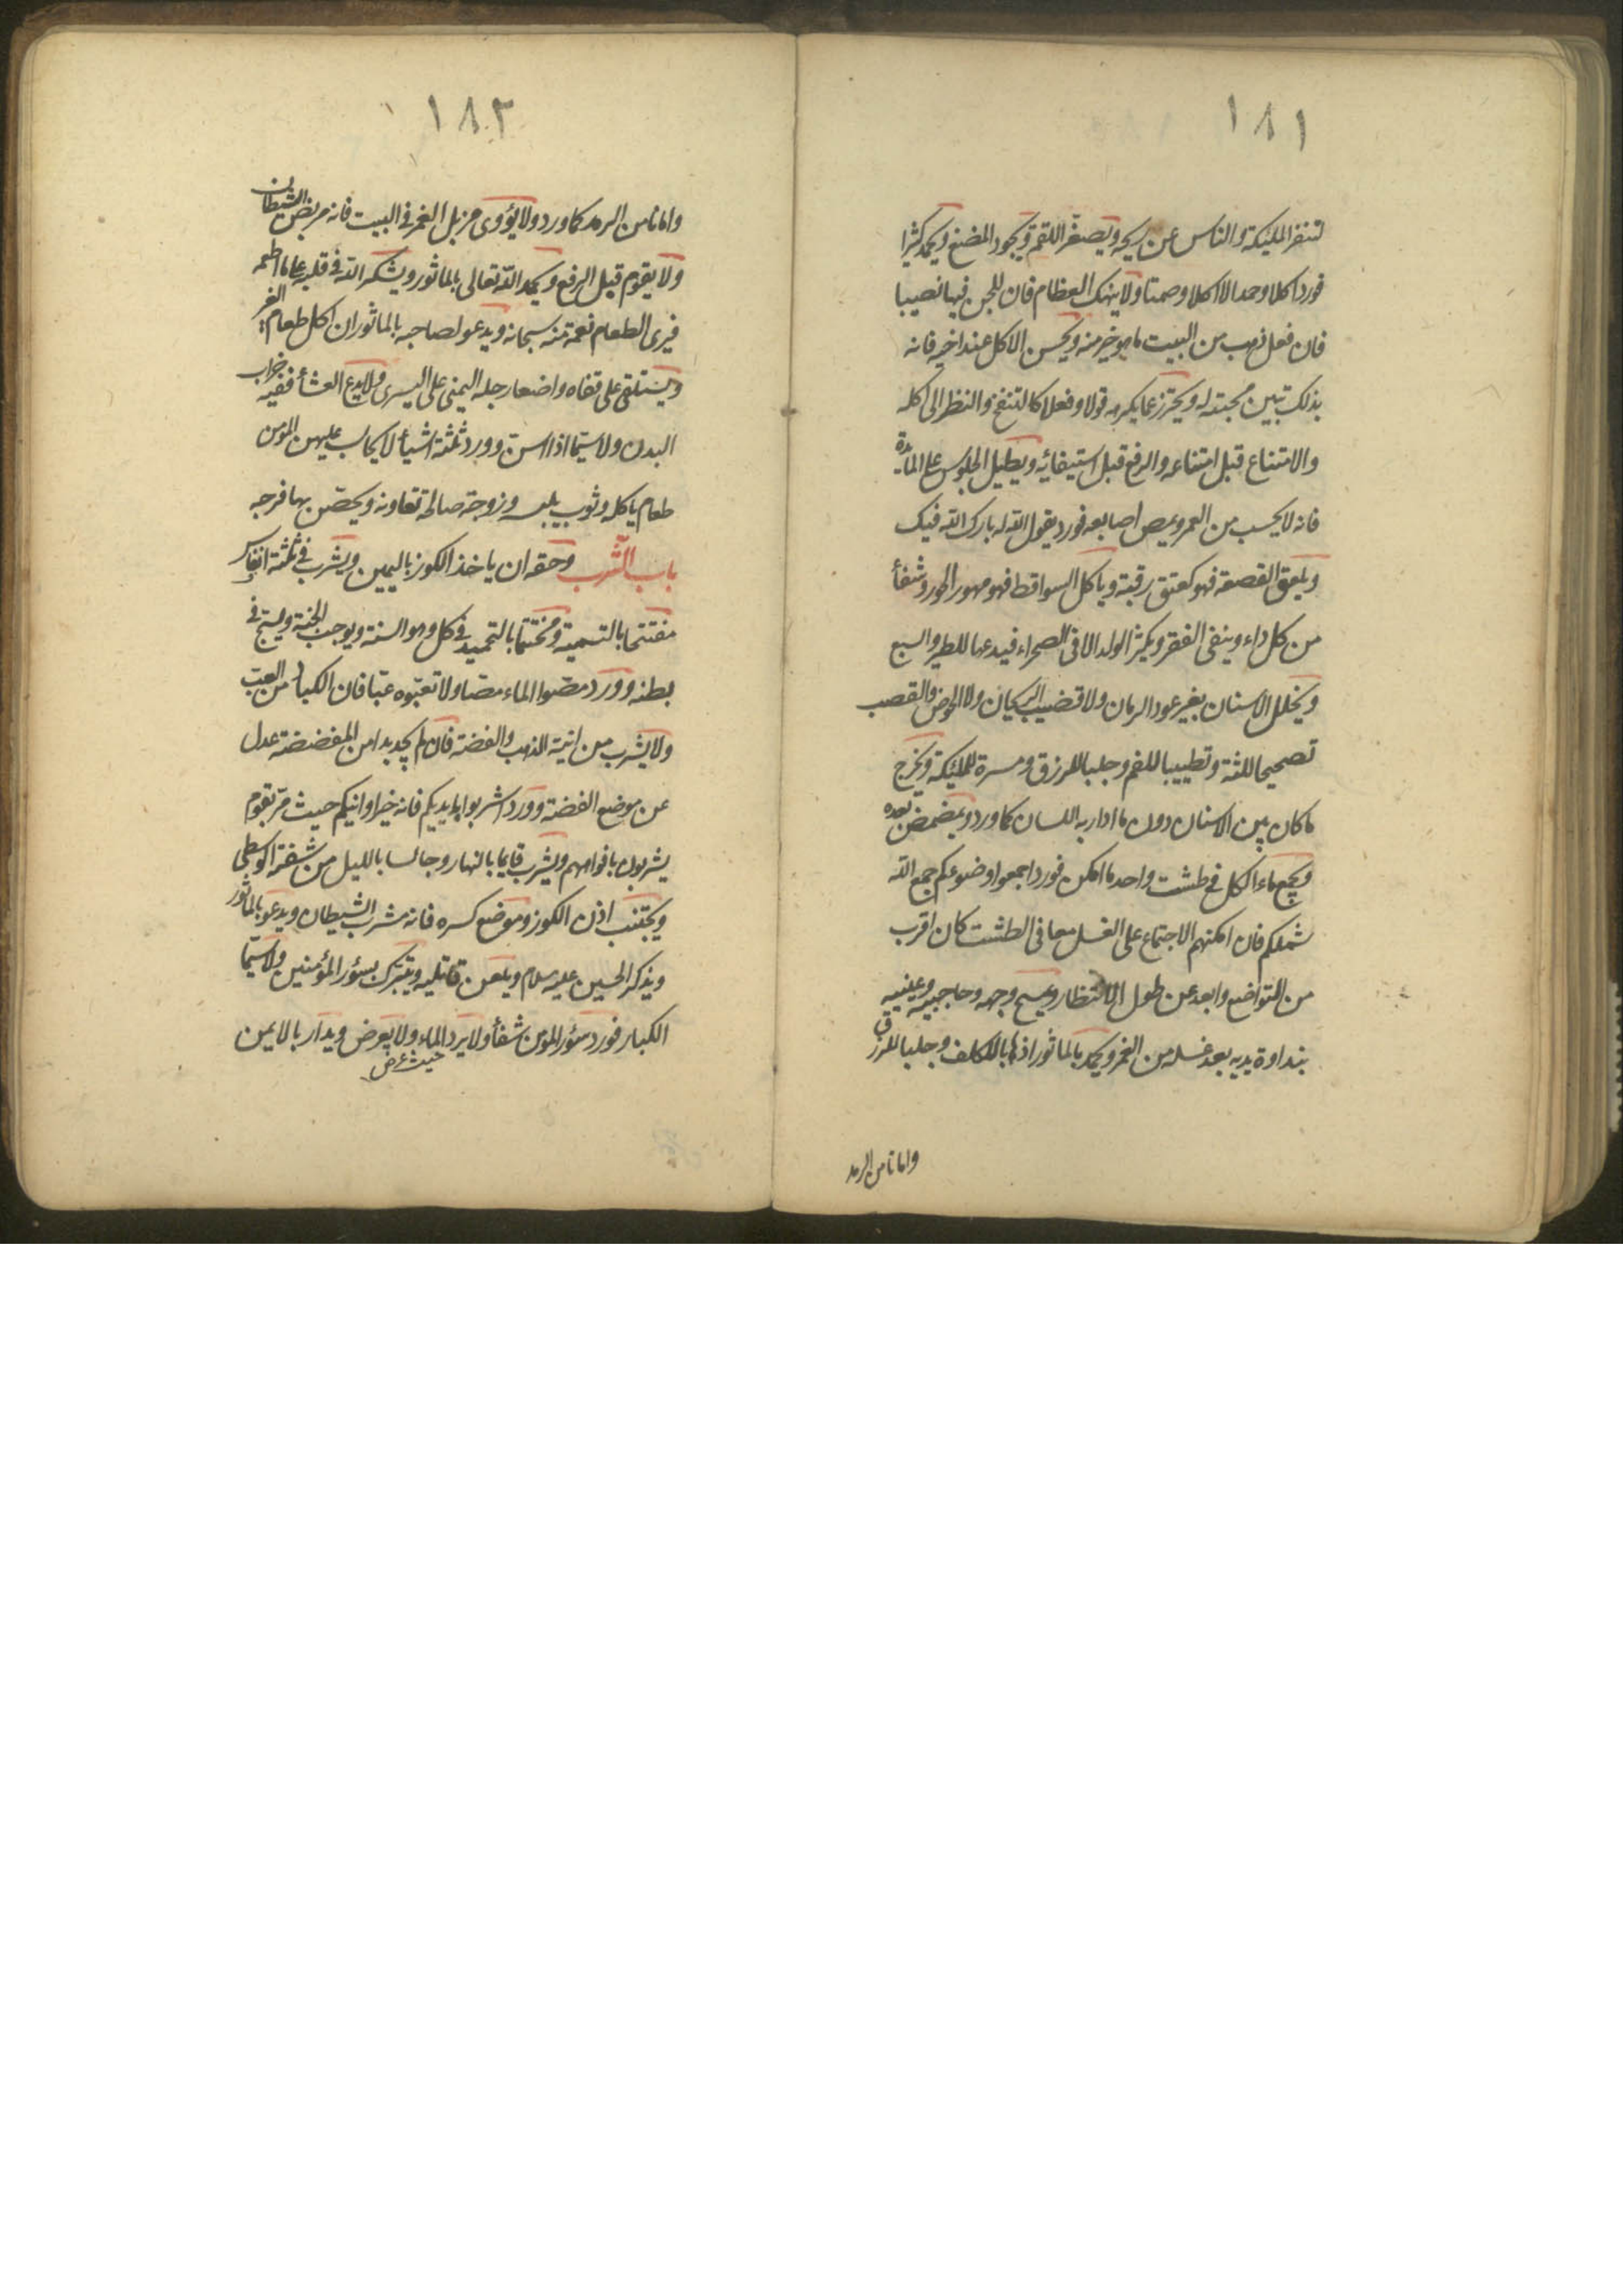 ١٨١
لتنفر الملئكة والناس عن ريحه ويصغر اللقم ويجود المضغ ويحمد كثيرا
فورد اكلا وحمدا لا اكلا وصمتا ولا ينهك العظام فان للجن فيها نصيبا
فان فعل ذهب من البيت ما هو خير منه ويحسن الاكل عند اخيه فانه
بذلك تبين محبته له ويحترز عما يكره قولا وفعلا كالتنفخ والنظر الى اكله
والامتناع قبل امتناعه والرفع قبل استيفائه ويطيل الجلوس على المائدة
فانه لا يحسب من العمر ويمص اصابعه فورد يقول الله له بارك الله فيك
ويلعق القصعة فهو كعتق رقبة وياكل السواقط فهو مهور الحور وشفأ
من كل داء وينفى الفقر ويكثر الولد الا فى الصحراء فيدعها للطير والسبع
ويخلل الاسنان بغير عود الرمان ولا قضيب الريحان ولا الخوص والقصب
تصحيحا للثة وتطييبا للفم وجلبا للرزق ومسرة للملئكة ويخرج
ما كان بين الاسنان دون ما ادار به اللسان كما ورد ويمضمض بعده
ويجمع ماء الكل فى طشت واحد ما امكن فورد اجمعوا وضوءكم جمع الله
شملكم فان امكنهم الاجتماع على الغسل معا فى الطشت كان اقرب
من التواضع وابعد عن طول الانتظار ويمسح وجهه وحاجبيه وعينيه
بنداوة يديه بعد غسله من الغمر ويحمد بالماثور اذهابا للكلف وجلبا للرزق
واما نا من الرمد
١٨٢
واما نا من الرمد كما ورد ولا يؤوى مزبل الغمر فى البيت فانه مربض الشيطان
ولا يقوم قبل الرفع ويحمد الله تعالى بالماثور ويشكر الله فى قلبه على ما اطعمه
فيرى الطعام نعمة منه سبحانه ويدعو لصاحبه بالماثور ان اكل طعام الغير
ويستلقى على قفاه واضعا رجله اليمنى على اليسرى ولا يدع العشأ ففيه خراب
البدن ولا سيما اذا اسن وورد ثلثة اشيأ لا يحاسب عليهن المومن
طعام ياكله وثوب يلبسه وزوجة صالحة تعاونه ويحصن بها فرجه
باب الشرب وحقه ان ياخذ الكوز باليمين ويشرب فى ثلثة انفاس
مفتتحا بالتسمية ومختتما بالتحميد فى كل وهو السنة ويوجب الجنة ويسبح فى
بطنه وورد مصوا الماء مصا ولا تعبوه عبا فان الكباد من العب
ولا يشرب من انية الذهب والفضة فان لم يجد بدا من المفضضة عدل
عن موضع الفضة وورد اشربوا بايديكم فانه خير اوانيكم حيث مر بقوم
يشربون بافواههم ويشرب قايما بالنهار وجالسا بالليل من شفته الوسطى
ويجتنب اذن الكوز وموضع كسره فانه مشرب الشيطان ويدعو بالماثور
ويذكر الحسين عليه سلام ويلعن قاتليه ويتبرك بسؤر المؤمنين ولا سيما
الكبار فورد سؤر المومن شفأ ولا يرد الماء ولا يعرض ويدار بالايمن
حيث عرض